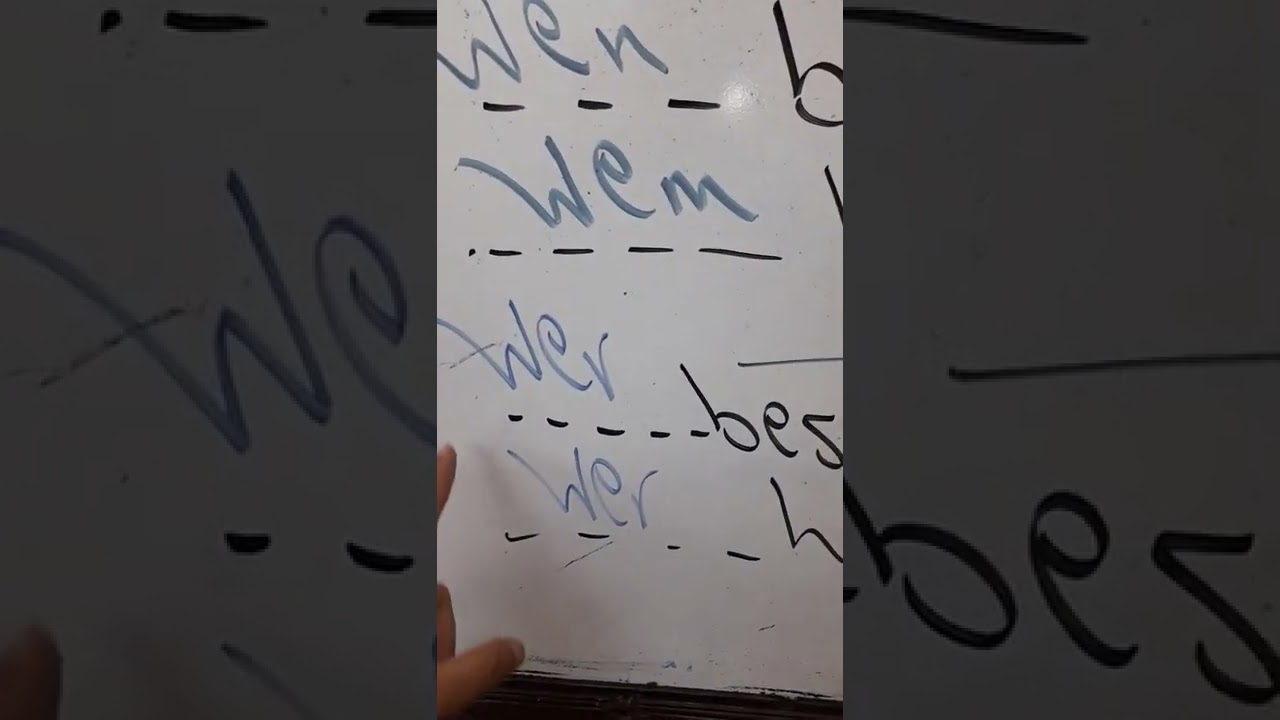 Wen
Wem
Wer
bes
Wer